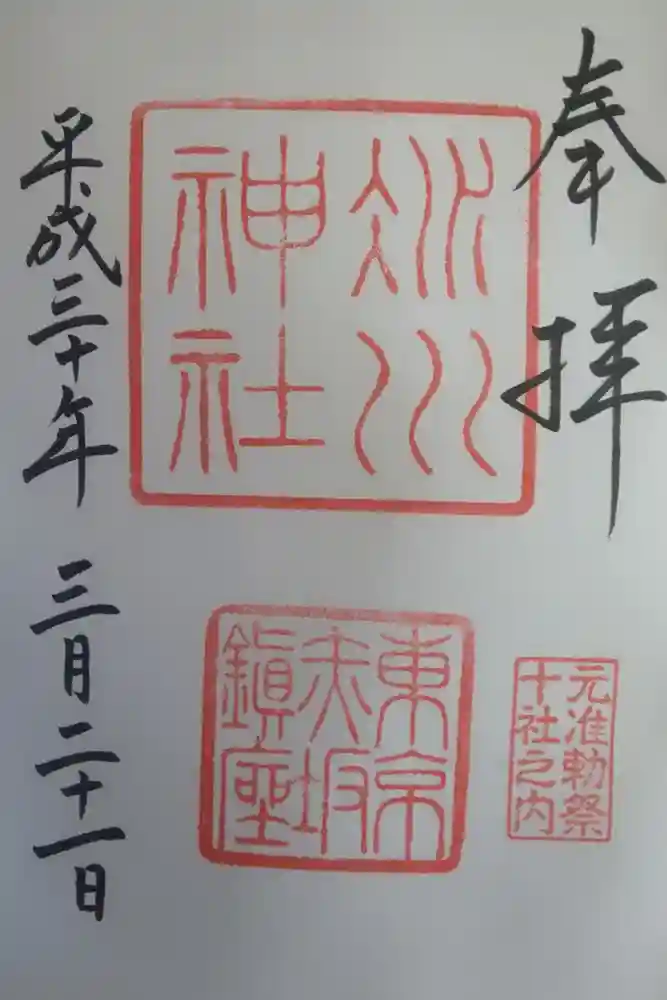 奉拝
氷川
神社
元准勅祭
十社之内
東京
赤坂
鎮座
平成三十年 三月二十一日